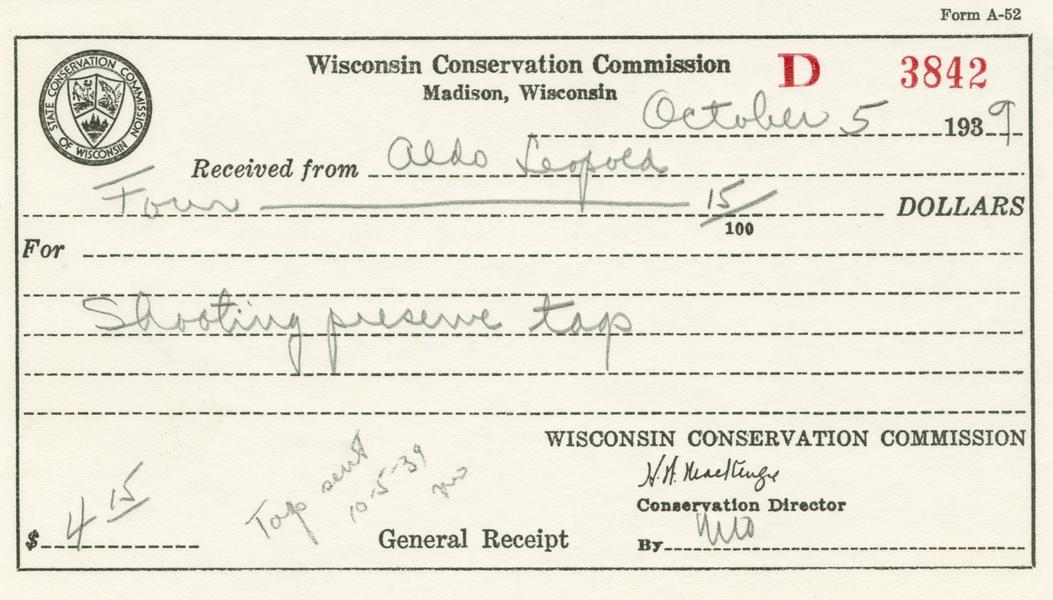 Form A-52
STATE CONSERVATION COMMISSION OF WISCONSIN
Wisconsin Conservation Commission D 3842
Madison, Wisconsin
October 5 1939
Received from Aldo Leopold
Four 15/100 DOLLARS
For
Shooting preserve tags
WISCONSIN CONSERVATION COMMISSION
H. W. MacKenzie
Conservation Director
$ 4 15
Tags sent
10-5-39
General Receipt
By